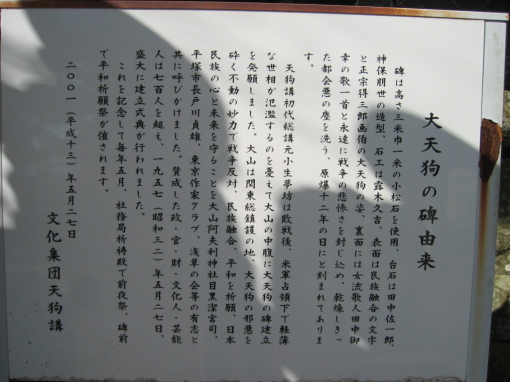 大天狗の碑由来
碑は高さ三米巾一米の小松石を使用、台石は田中佐一郎、
神保朋世の造型、石工は露木久吉、表面は民族融合の文字
と正宗得三郎画伯の大天狗の姿、裏面には女流歌人田中御
幸の歌一首と永遠に戦争の悲惨さを封じ込め、乾燥しきっ
た都会悪の塵を洗う、原爆十二年の日にと刻まれてありま
す。
天狗講初代総講元小生夢坊は敗戦後、米軍占領下で軽薄
な世相が氾濫するのを憂えて大山の中腹に大天狗の碑建立
を発願しました。大山は関東総鎮護の地、大天狗の邪悪を
砕く不動の妙力で戦争反対、民族融合、平和を祈願、日本
民族の心と未来を守ることを大山阿夫利神社目黒潔宮司、
平塚市長戸川貞雄、東京作家クラブ、浅草の会等の有志と
共に呼びかけました。賛成した政・官・財・文化人・芸能
人は七百人を超え、一九五七(昭和三二)年五月二七日、
盛大に建立式典が行われました。
これを記念して毎年五月、社務局祈祷殿で前夜祭、碑前
で平和祈願祭が催されます。
二〇〇一(平成十三)年五月二七日
文化集団天狗講